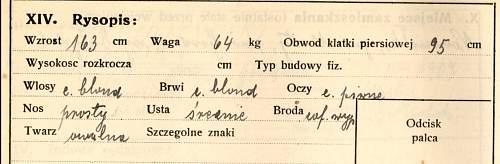 XIV. Rysopis:
Wzrost 163 cm Waga 64 kg Obwod klatki piersiowej 95 cm
Wysokosc rozkrocza cm Typ budowy fiz.
Włosy c. blond Brwi c. blond Oczy c. piwne
Nos prosty Usta średnie Broda
Twarz owalna Szczegolne znaki
Odcisk
palca